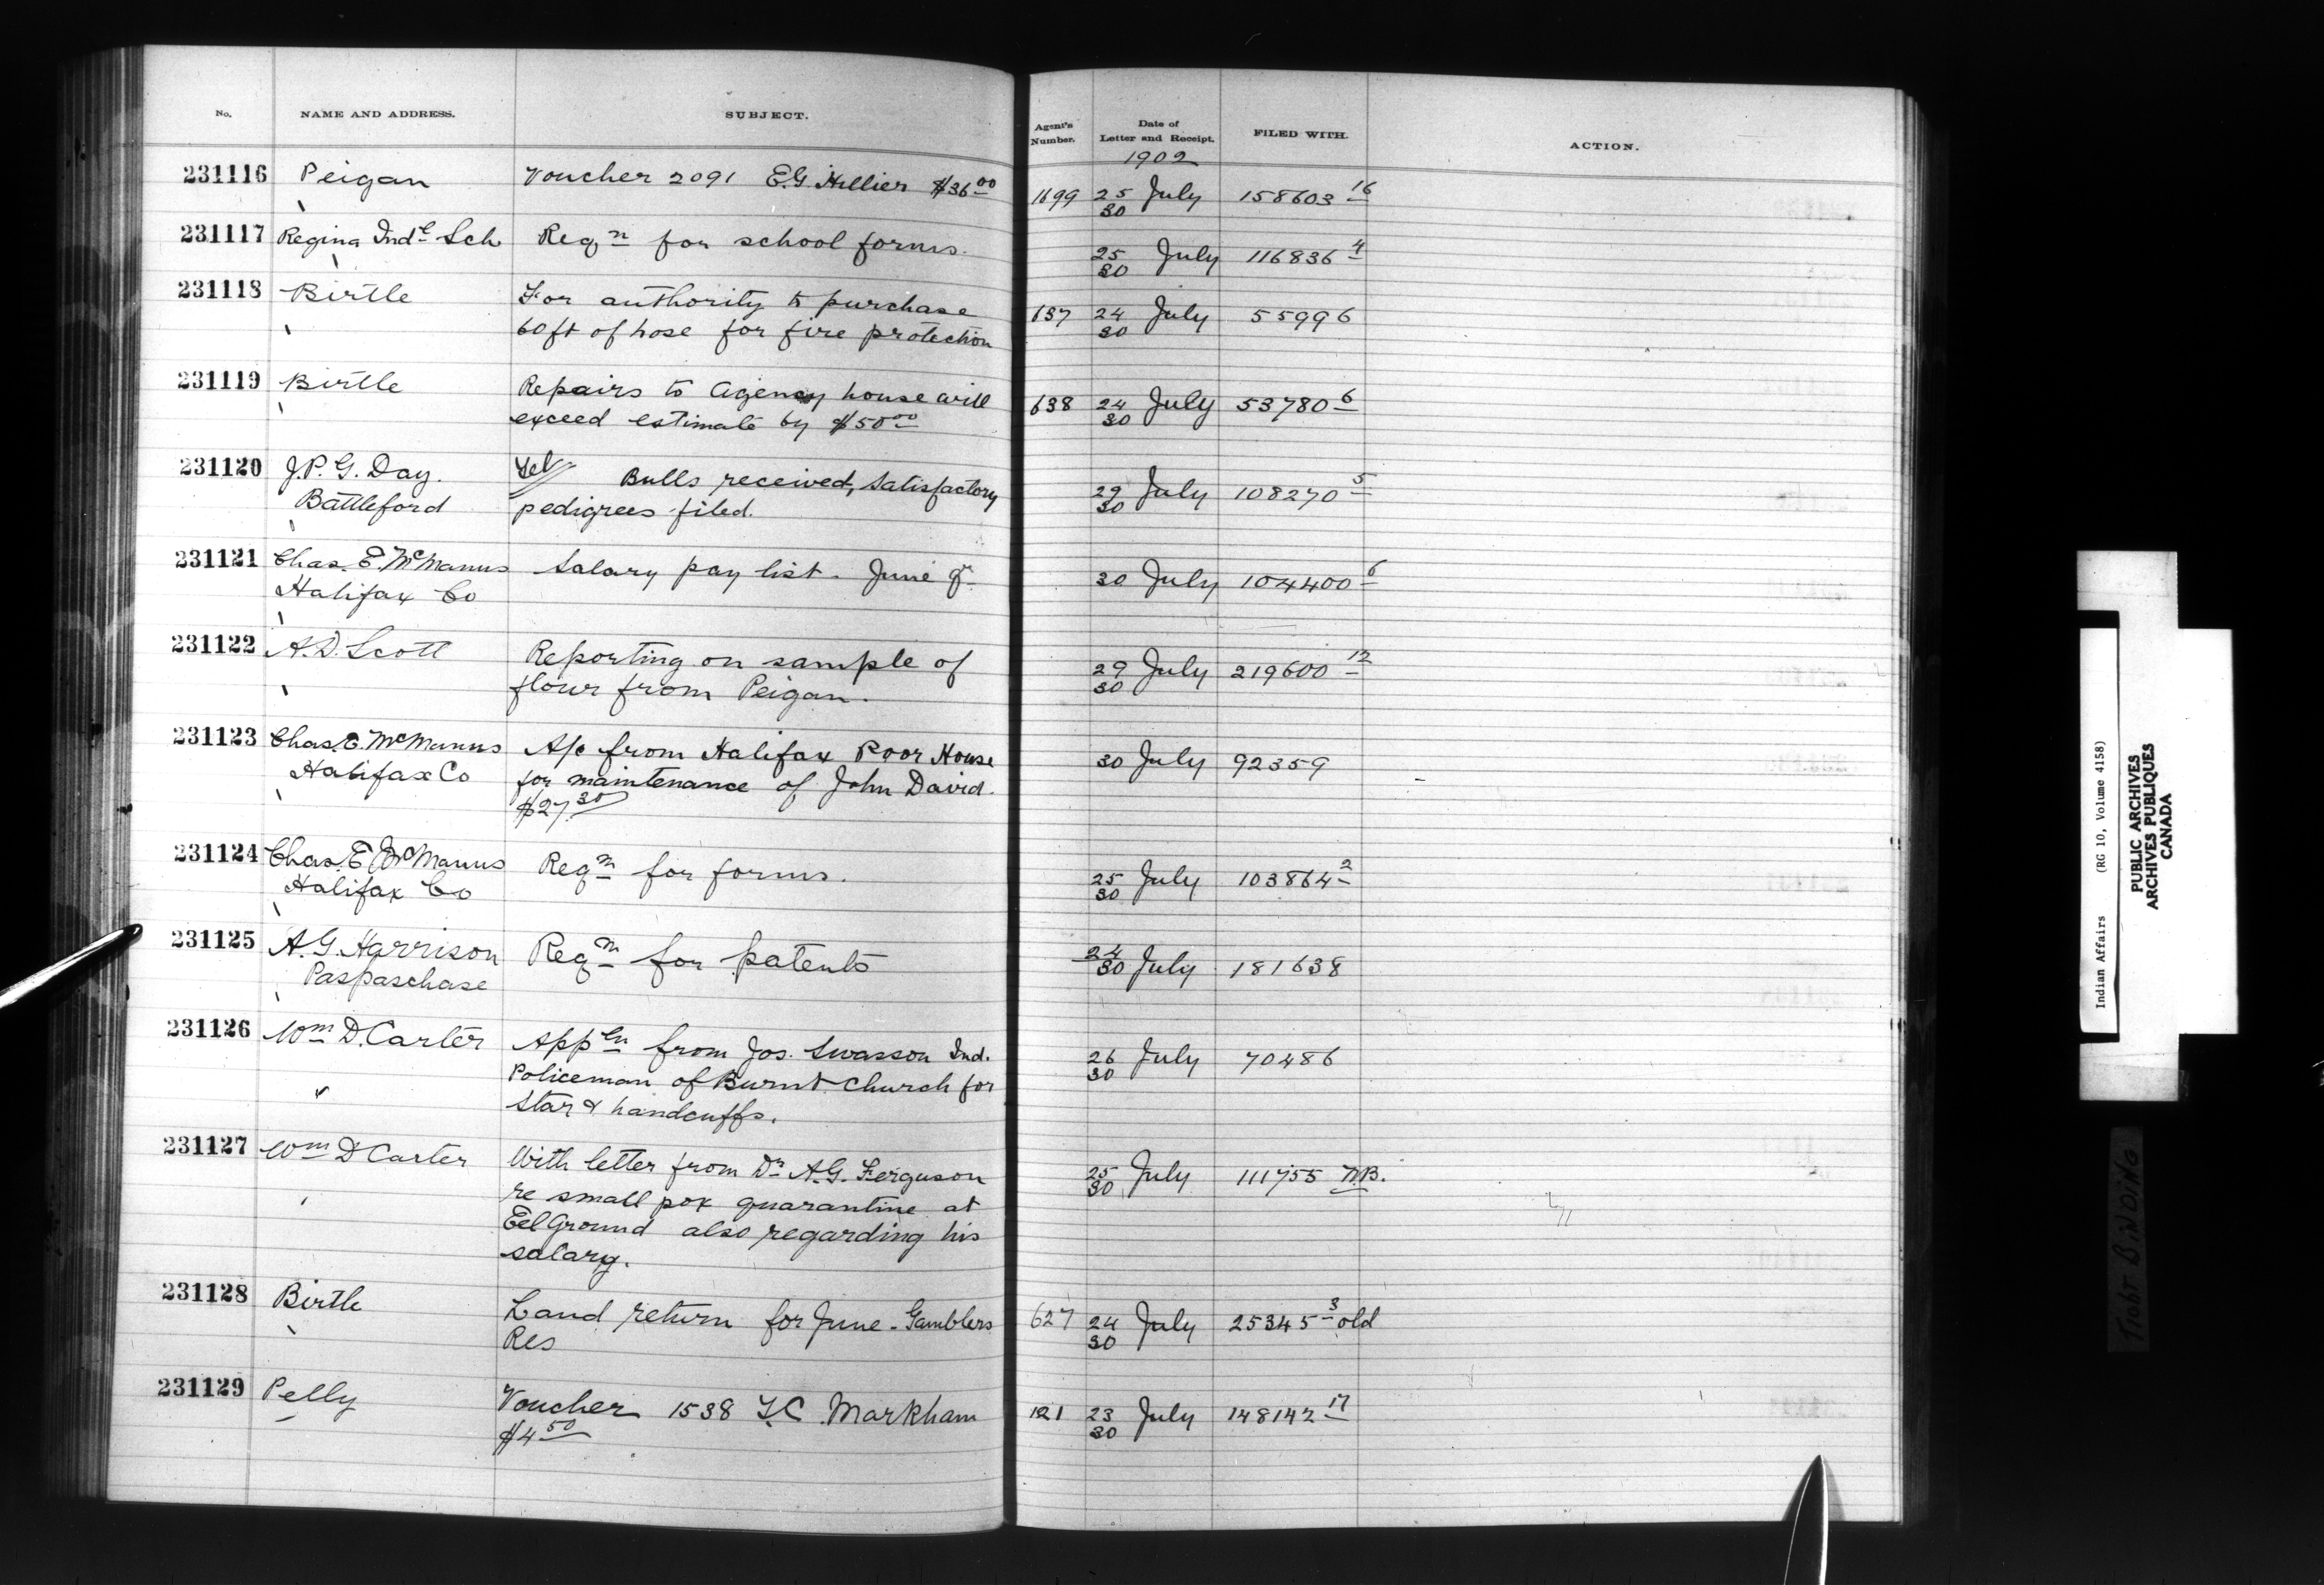 No. NAME AND ADDRESS. SUBJECT. Agent's Number. Date of Letter and Receipt. FILED WITH. ACTION.
1902
231116 Peigan Voucher 2091 E.G. Hillier $36.00 1699 25/30 July 158603 16
231117 Regina Indl Sch Reqn for school forms. 25/30 July 116836 4
231118 Birtle For authority to purchase 637 24/30 July 55996
60 ft of hose for fire protection
231119 Birtle Repairs to Agency house will 638 24/30 July 53780 6
exceed estimate by $50.00
231120 J.P.G. Day. Tel Bulls received, satisfactory 29/30 July 108270 5
Battleford pedigrees filed.
231121 Chas. E. McManus Salary pay list - June qr 30 July 104400 6
Halifax Co
231122 A.D. Scott Reporting on sample of 29/30 July 219600 12
flour from Peigan.
231123 Chas. E. McManus A/c from Halifax Poor House 30 July 92359
Halifax Co for maintenance of John David.
$27.30
231124 Chas. E McManus Reqn for forms. 25/30 July 103864 2
Halifax Co
231125 A.G. Harrison Reqn for patents 24/30 July 181638
Paspaschase
231126 Wm D. Carter Appln from Jos. Swasson Ind. 26/30 July 70486
Policeman of Burnt Church for
Star & handcuffs.
231127 Wm D Carter With letter from Dr A.G. Ferguson 25/30 July 111755 N.B.
re small pox quarantine at
Eel Ground also regarding his
salary.
231128 Birtle Land return for June - Gamblers 627 24/30 July 25345 3 old
Res
231129 Pelly Voucher 1538 T.C. Markham 121 23/30 July 148142 17
$4.50
Indian Affairs (RG 10, Volume 4158)
PUBLIC ARCHIVES
ARCHIVES PUBLIQUES
CANADA
TIGHT BINDING